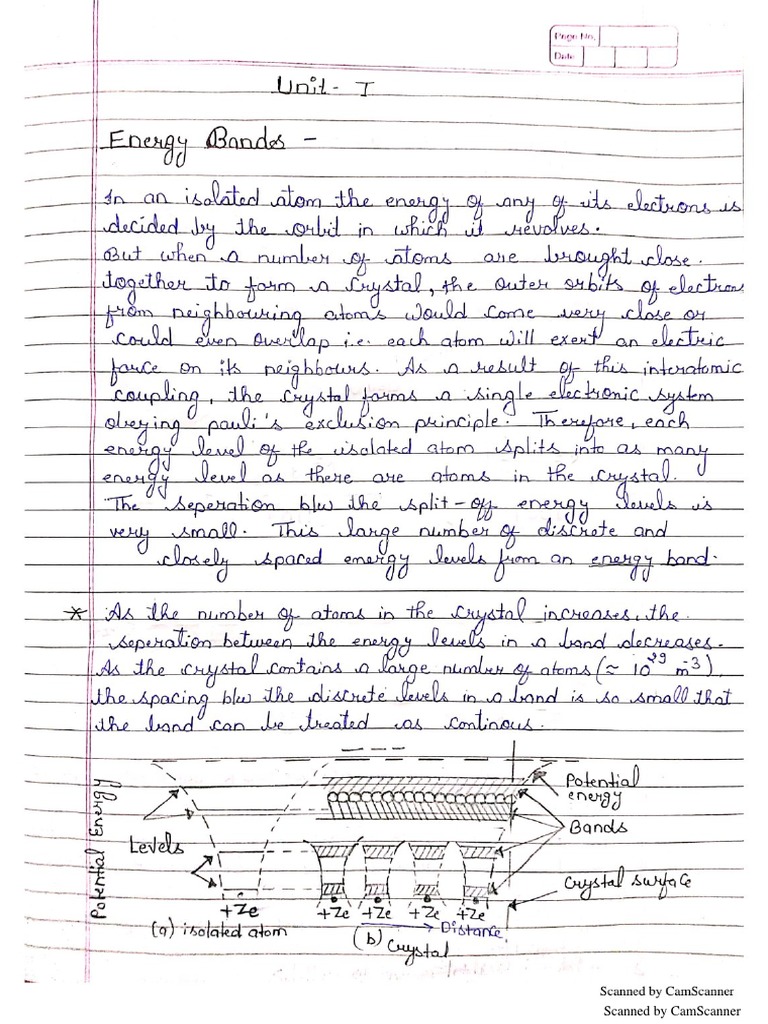 Page No.
Date
Unit - I
Energy Bandes -
In an isolated atom the energy of any of its electrons is
decided by the orbit in which it revolves.
But when a number of atoms are brought close.
together to form a crystal, the outer orbits of electrons
from neighbouring atoms would come very close or
could even overlap i.e. each atom will exert an electric
farce on its neighbours. As a result of this interatomic
coupling, the crystal forms a single electronic system
obeying pauli's exclusion principle. Therefore, each
energy level of the isolated atom splits into as many
energy level as there are atoms in the crystal.
The seperation b/w the split-off energy levels is
very small. This large number of discrete and
closely spaced energy levels from an energy band.
* As the number of atoms in the crystal increases, the
seperation between the energy levels in a band decreases.
As the crystal contains a large number of atoms (≈ 10²⁹ m⁻³),
the spacing b/w the discrete levels in a band is so small that
the band can be treated as continous.
Potential Energy
Levels
Potential
energy
Bands
Crystal surface
+Ze
+Ze +Ze +Ze +Ze
Distance
(a) isolated atom
(b) Crystal
Scanned by CamScanner
Scanned by CamScanner